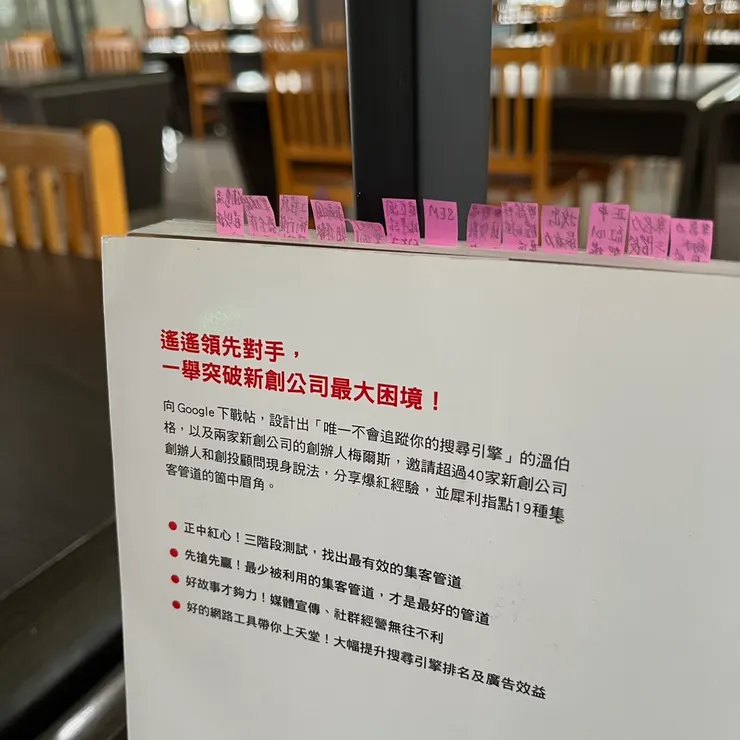 SEM
找出
正中
紅心
遙遙領先對手，
一舉突破新創公司最大困境！
向Google下戰帖，設計出「唯一不會追蹤你的搜尋引擎」的溫伯
格，以及兩家新創公司的創辦人梅爾斯，邀請超過40家新創公司
創辦人和創投顧問現身說法，分享爆紅經驗，並犀利指點19種集
客管道的箇中眉角。
● 正中紅心！三階段測試，找出最有效的集客管道
● 先搶先贏！最少被利用的集客管道，才是最好的管道
● 好故事才夠力！媒體宣傳、社群經營無往不利
● 好的網路工具帶你上天堂！大幅提升搜尋引擎排名及廣告效益